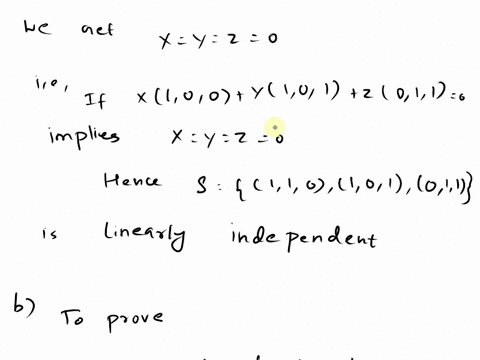 We get X = Y = Z = 0
i,e, If X(1,0,0) + Y(1,0,1) + Z(0,1,1) = 0
implies X = Y = Z = 0
Hence S : {(1,1,0),(1,0,1),(0,1,1)}
is linearly independent
b) To prove